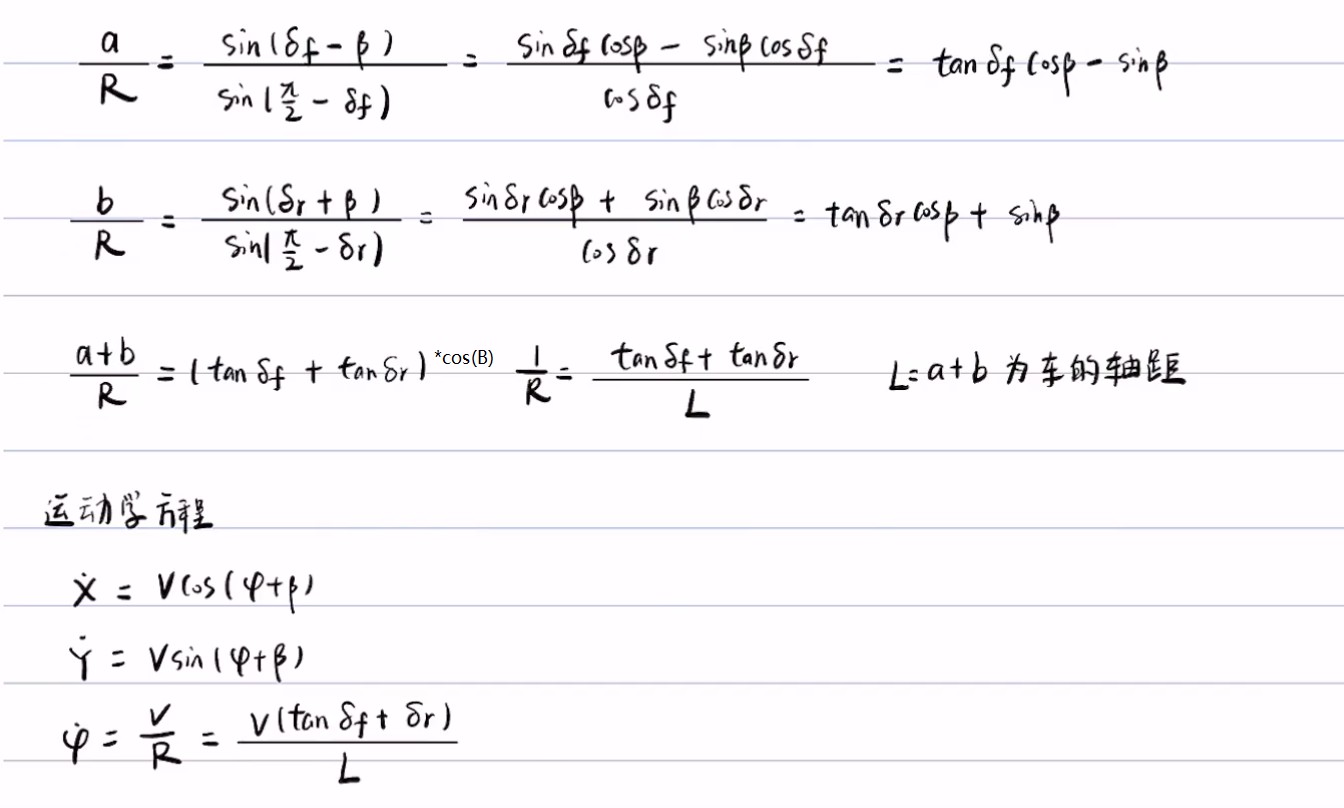 a/R = sin(δf - β)/sin(π/2 - δf) = (sin δf cosβ - sinβ cos δf)/cos δf = tan δf cosβ - sinβ
b/R = sin(δr + β)/sin(π/2 - δr) = (sin δr cosβ + sinβ cos δr)/cos δr = tan δr cosβ + sinβ
(a+b)/R = (tan δf + tan δr) *cos(B) 1/R = (tan δf + tan δr)/L L=a+b 为车的轴距
运动学方程
Ẋ = Vcos(φ+β)
Ẏ = Vsin(φ+β)
φ̇ = V/R = V(tan δf + δr)/L